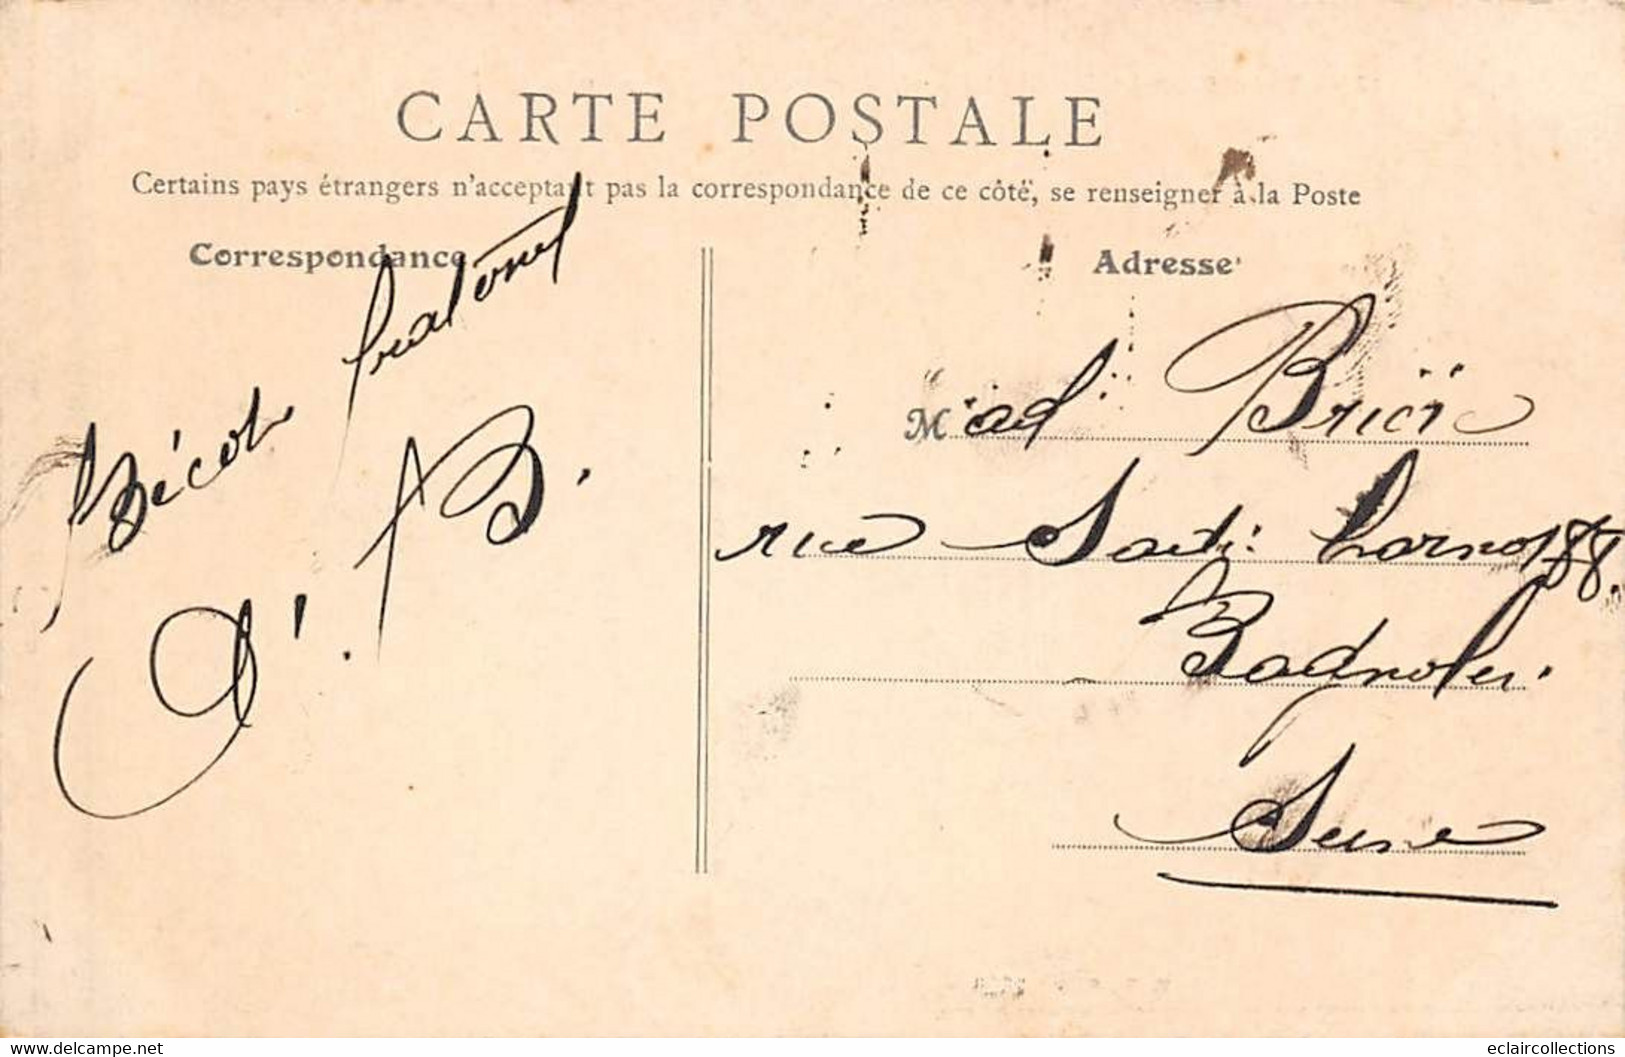 CARTE POSTALE
Certains pays étrangers n'acceptant pas la correspondance de ce côté, se renseigner à la Poste
Correspondance
Adresse
Bécot fraternel
B.
Mad Bricî
rue Sadi Carnot 88.
Bagnolet
Seine
delcampe.net
eclaircollections